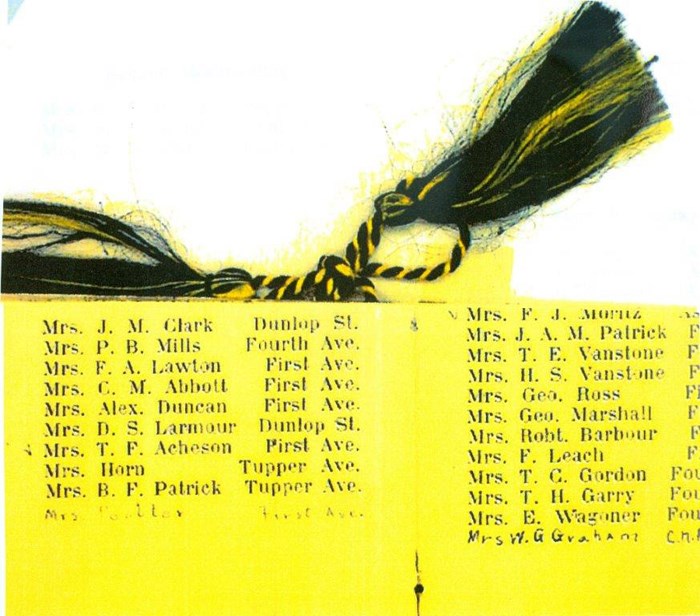 Mrs. J. M. Clark Dunlop St.
Mrs. P. B. Mills Fourth Ave.
Mrs. F. A. Lawton First Ave.
Mrs. C. M. Abbott First Ave.
Mrs. Alex. Duncan First Ave.
Mrs. D. S. Larmour Dunlop St.
Mrs. T. F. Acheson First Ave.
Mrs. Horn Tupper Ave.
Mrs. B. F. Patrick Tupper Ave.
Mrs. First Ave.
Mrs. F. J. Moritz
Mrs. J. A. M. Patrick F
Mrs. T. E. Vanstone F
Mrs. H. S. Vanstone F
Mrs. Geo. Ross
Mrs. Geo. Marshall F
Mrs. Robt. Barbour F
Mrs. F. Leach F
Mrs. T. C. Gordon Fou
Mrs. T. H. Garry Fou
Mrs. E. Wagoner Fou
Mrs W. G Graham